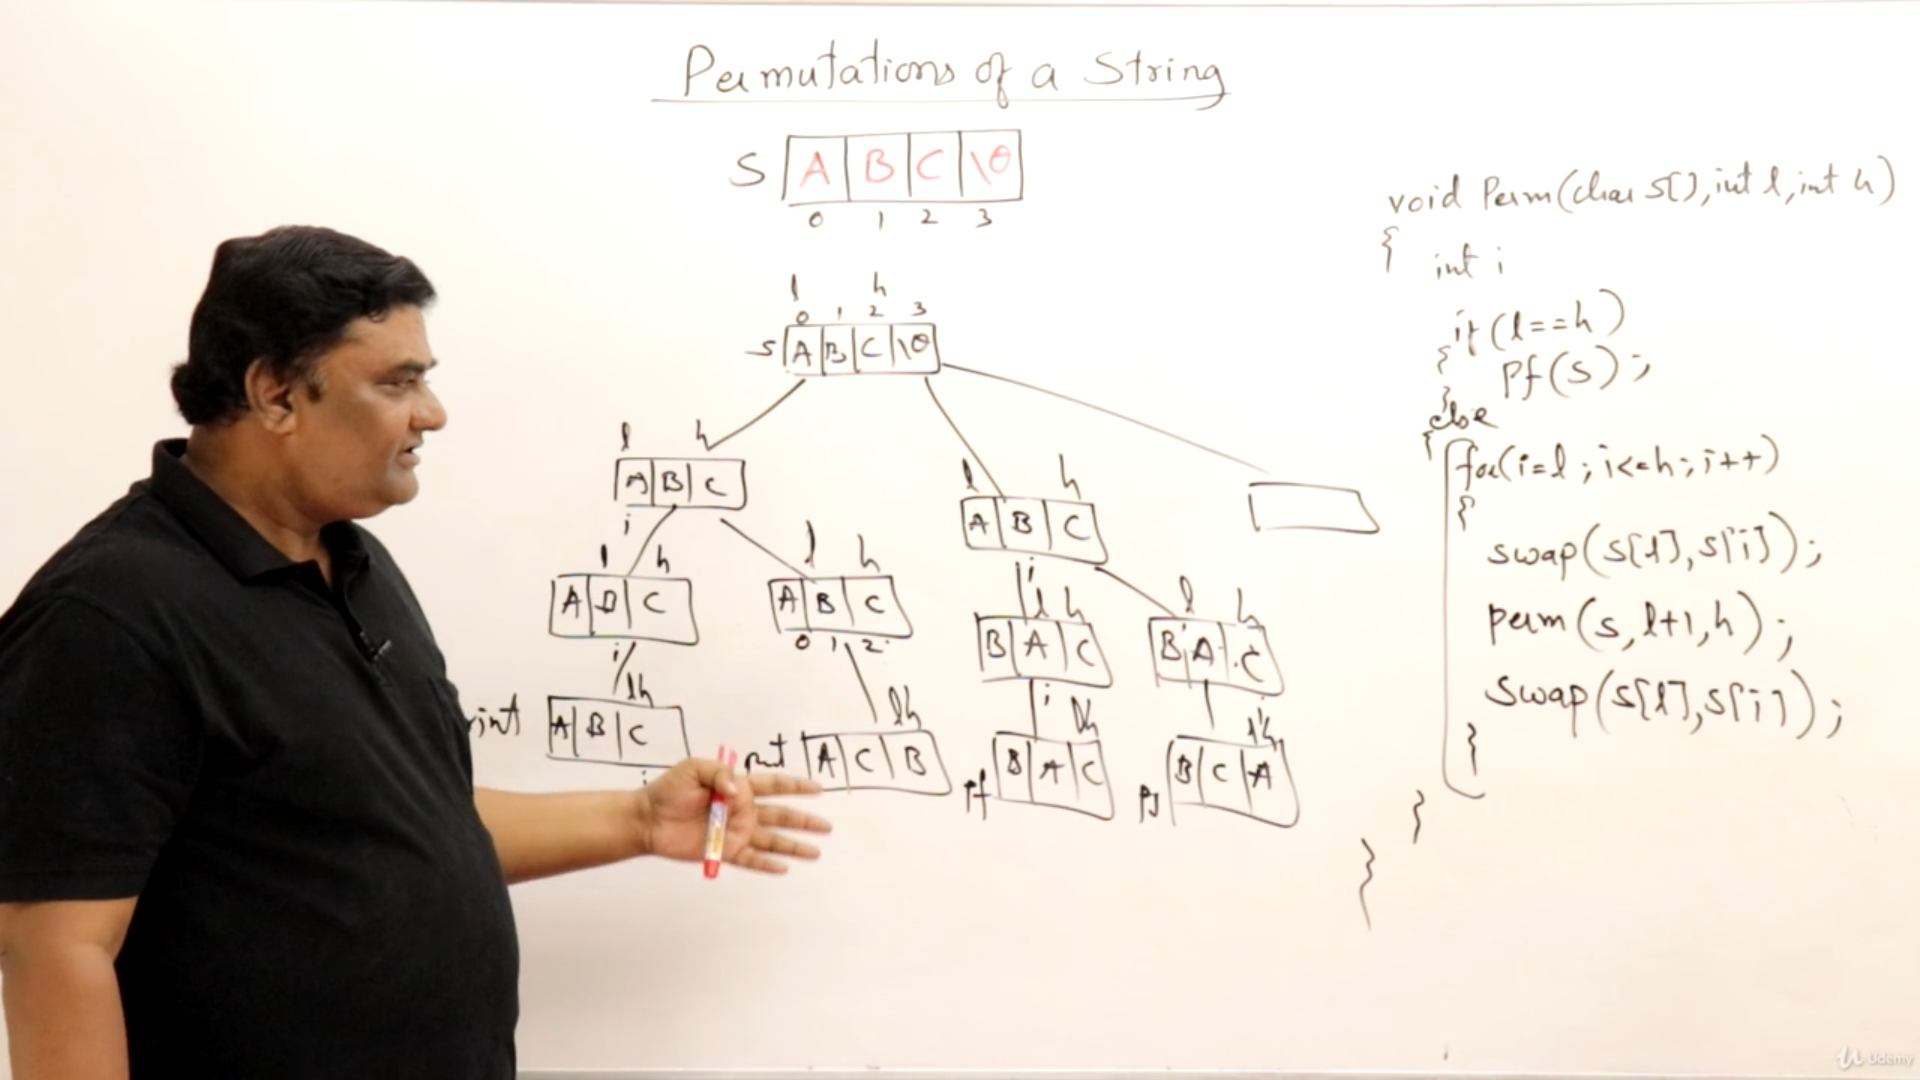 Permutations of a String
S A B C \0
0 1 2 3
l h
0 1 2 3
S A B C \0
l h
A B C
i
l h
A B C
i
l h
A B C
l h
A B C
0 1 2
l h
A C B
l h
A B C
i
l h
B A C
i
l h
Pf B A C
l h
B A C
i
l h
B C A
void Perm(char s[], int l, int h)
{ int i
if (l==h)
{ Pf(S);
}
else
{ for(i=l; i<=h; i++)
{
swap(s[l], s[i]);
perm(s, l+1, h);
swap(s[l], s[i]);
}
}
}
Udemy